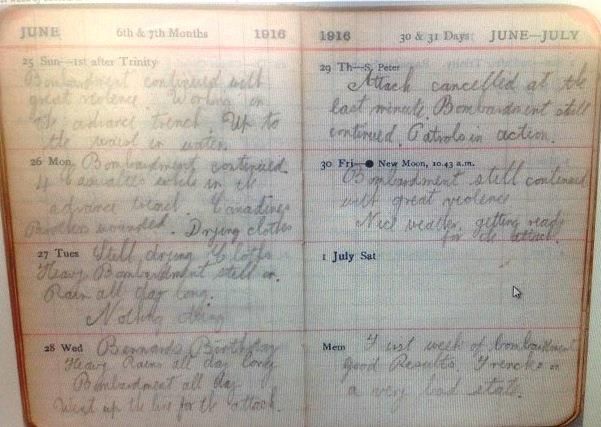 JUNE 6th & 7th Months 1916
25 Sun—1st after Trinity
Bombardment continued with
great violence. Working in
the advance trench. Up to
the waist in water.
26 Mon. Bombardment continued.
4 Casualties while in the
advance trench.
Brothers wounded. Drying clothes
27 Tues Still drying Cloths
Heavy Bombardment still on.
Rain all day long.
Nothing doing
28 Wed Bernards Birthday
Heavy Rains all day long
Bombardment all day
Went up the line for the attack.
1916 30 & 31 Days JUNE—JULY
29 Th—S. Peter
Attack cancelled at the
last minute. Bombardment still
continued. Patrols in action.
30 Fri—● New Moon, 10.43 a.m.
Bombardment still continued
with great violence
Nice weather, getting ready
for the attack.
1 July Sat
Mem First week of bombardment
good Results. Trenches in
a very bad state.